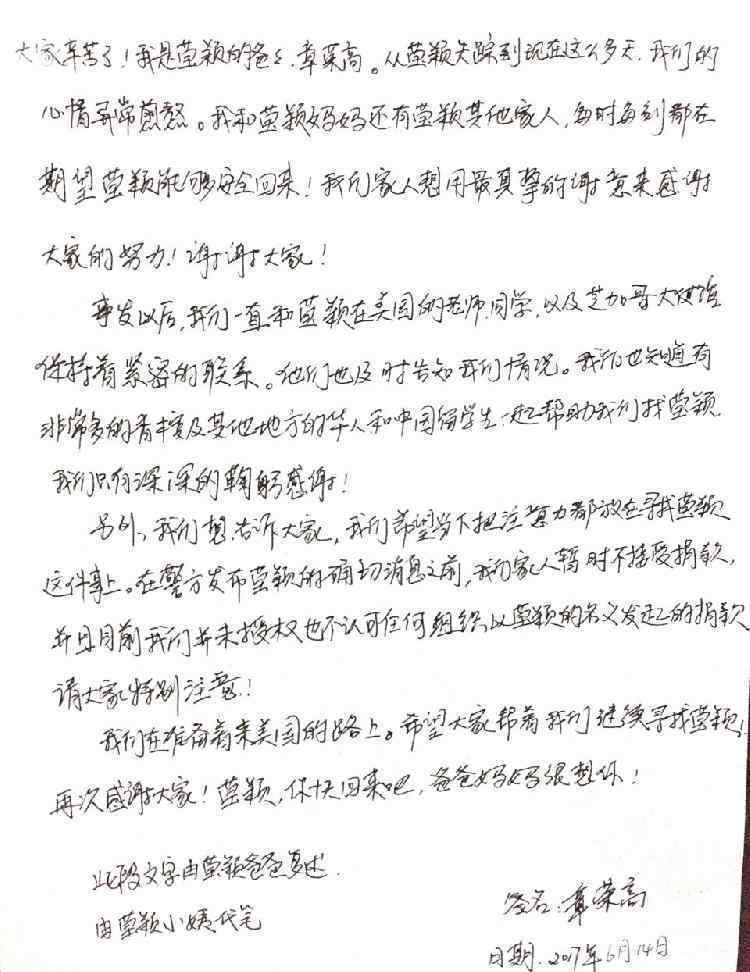 大家辛苦了！我是莹颖的爸爸，章荣高。从莹颖失踪到现在这么多天，我们的
心情异常煎熬。我和莹颖妈妈还有莹颖其他家人，每时每刻都在
期望莹颖能够安全回来！我们家人想用最真挚的谢意来感谢
大家的努力！谢谢大家！
事发以后，我们一直和莹颖在美国的老师、同学，以及芝加哥大使馆
保持着紧密的联系。他们也及时告知我们情况。我们也知道有
非常多的香槟及其他地方的华人和中国留学生一起帮助我们找莹颖，
我们只有深深的鞠躬感谢！
另外，我们想告诉大家，我们希望当下把注意力都放在寻找莹颖
这件事上。在警方发布莹颖的确切消息之前，我们家人暂时不接受捐款，
并且目前我们并未授权也不认可任何组织以莹颖的名义发起的捐款
请大家特别注意！
我们在准备着来美国的路上。希望大家帮着我们继续寻找莹颖！
再次感谢大家！莹颖，你快回来吧，爸爸妈妈很想你！
此段文字由莹颖爸爸口述.
由莹颖小姨代笔
签名：章荣高
日期.2017年6月14日